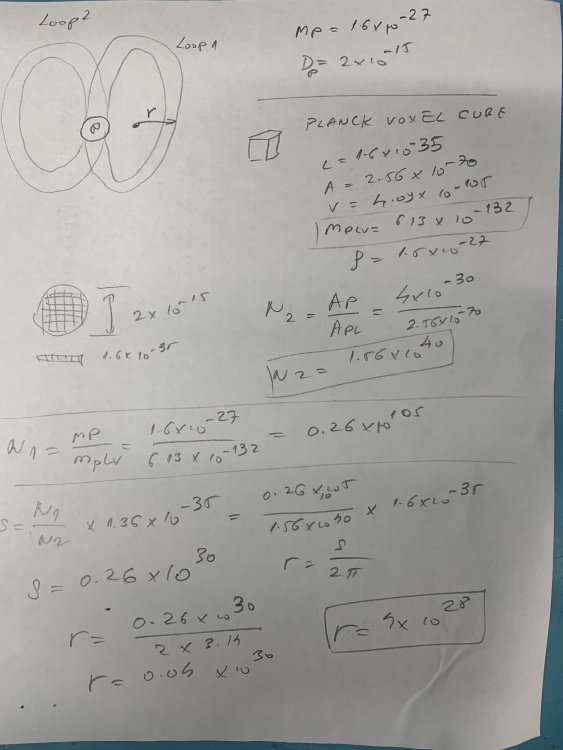 Loop 2
Loop 1
r
P
Mp = 1.6 x 10^-27
Dp = 2 x 10^-15
PLANCK VOXEL CUBE
L = 1.6 x 10^-35
A = 2.56 x 10^-70
V = 4.09 x 10^-105
MPLV = 6.13 x 10^-132
ρ = 1.5 x 10^-27
2 x 10^-15
1.6 x 10^-35
N2 = AP / APL = 4 x 10^-30 / 2.56 x 10^-70
N2 = 1.56 x 10^40
N1 = MP / MPLV = 1.6 x 10^-27 / 6.13 x 10^-132 = 0.26 x 10^105
S = N1 / N2 x 1.36 x 10^-35 = 0.26 x 10^5 / 1.56 x 10^40 x 1.6 x 10^-35
S = 0.26 x 10^30
r = S / 2π
r = 0.26 x 10^30 / 2 x 3.14
r = 4 x 10^28
r = 0.04 x 10^30